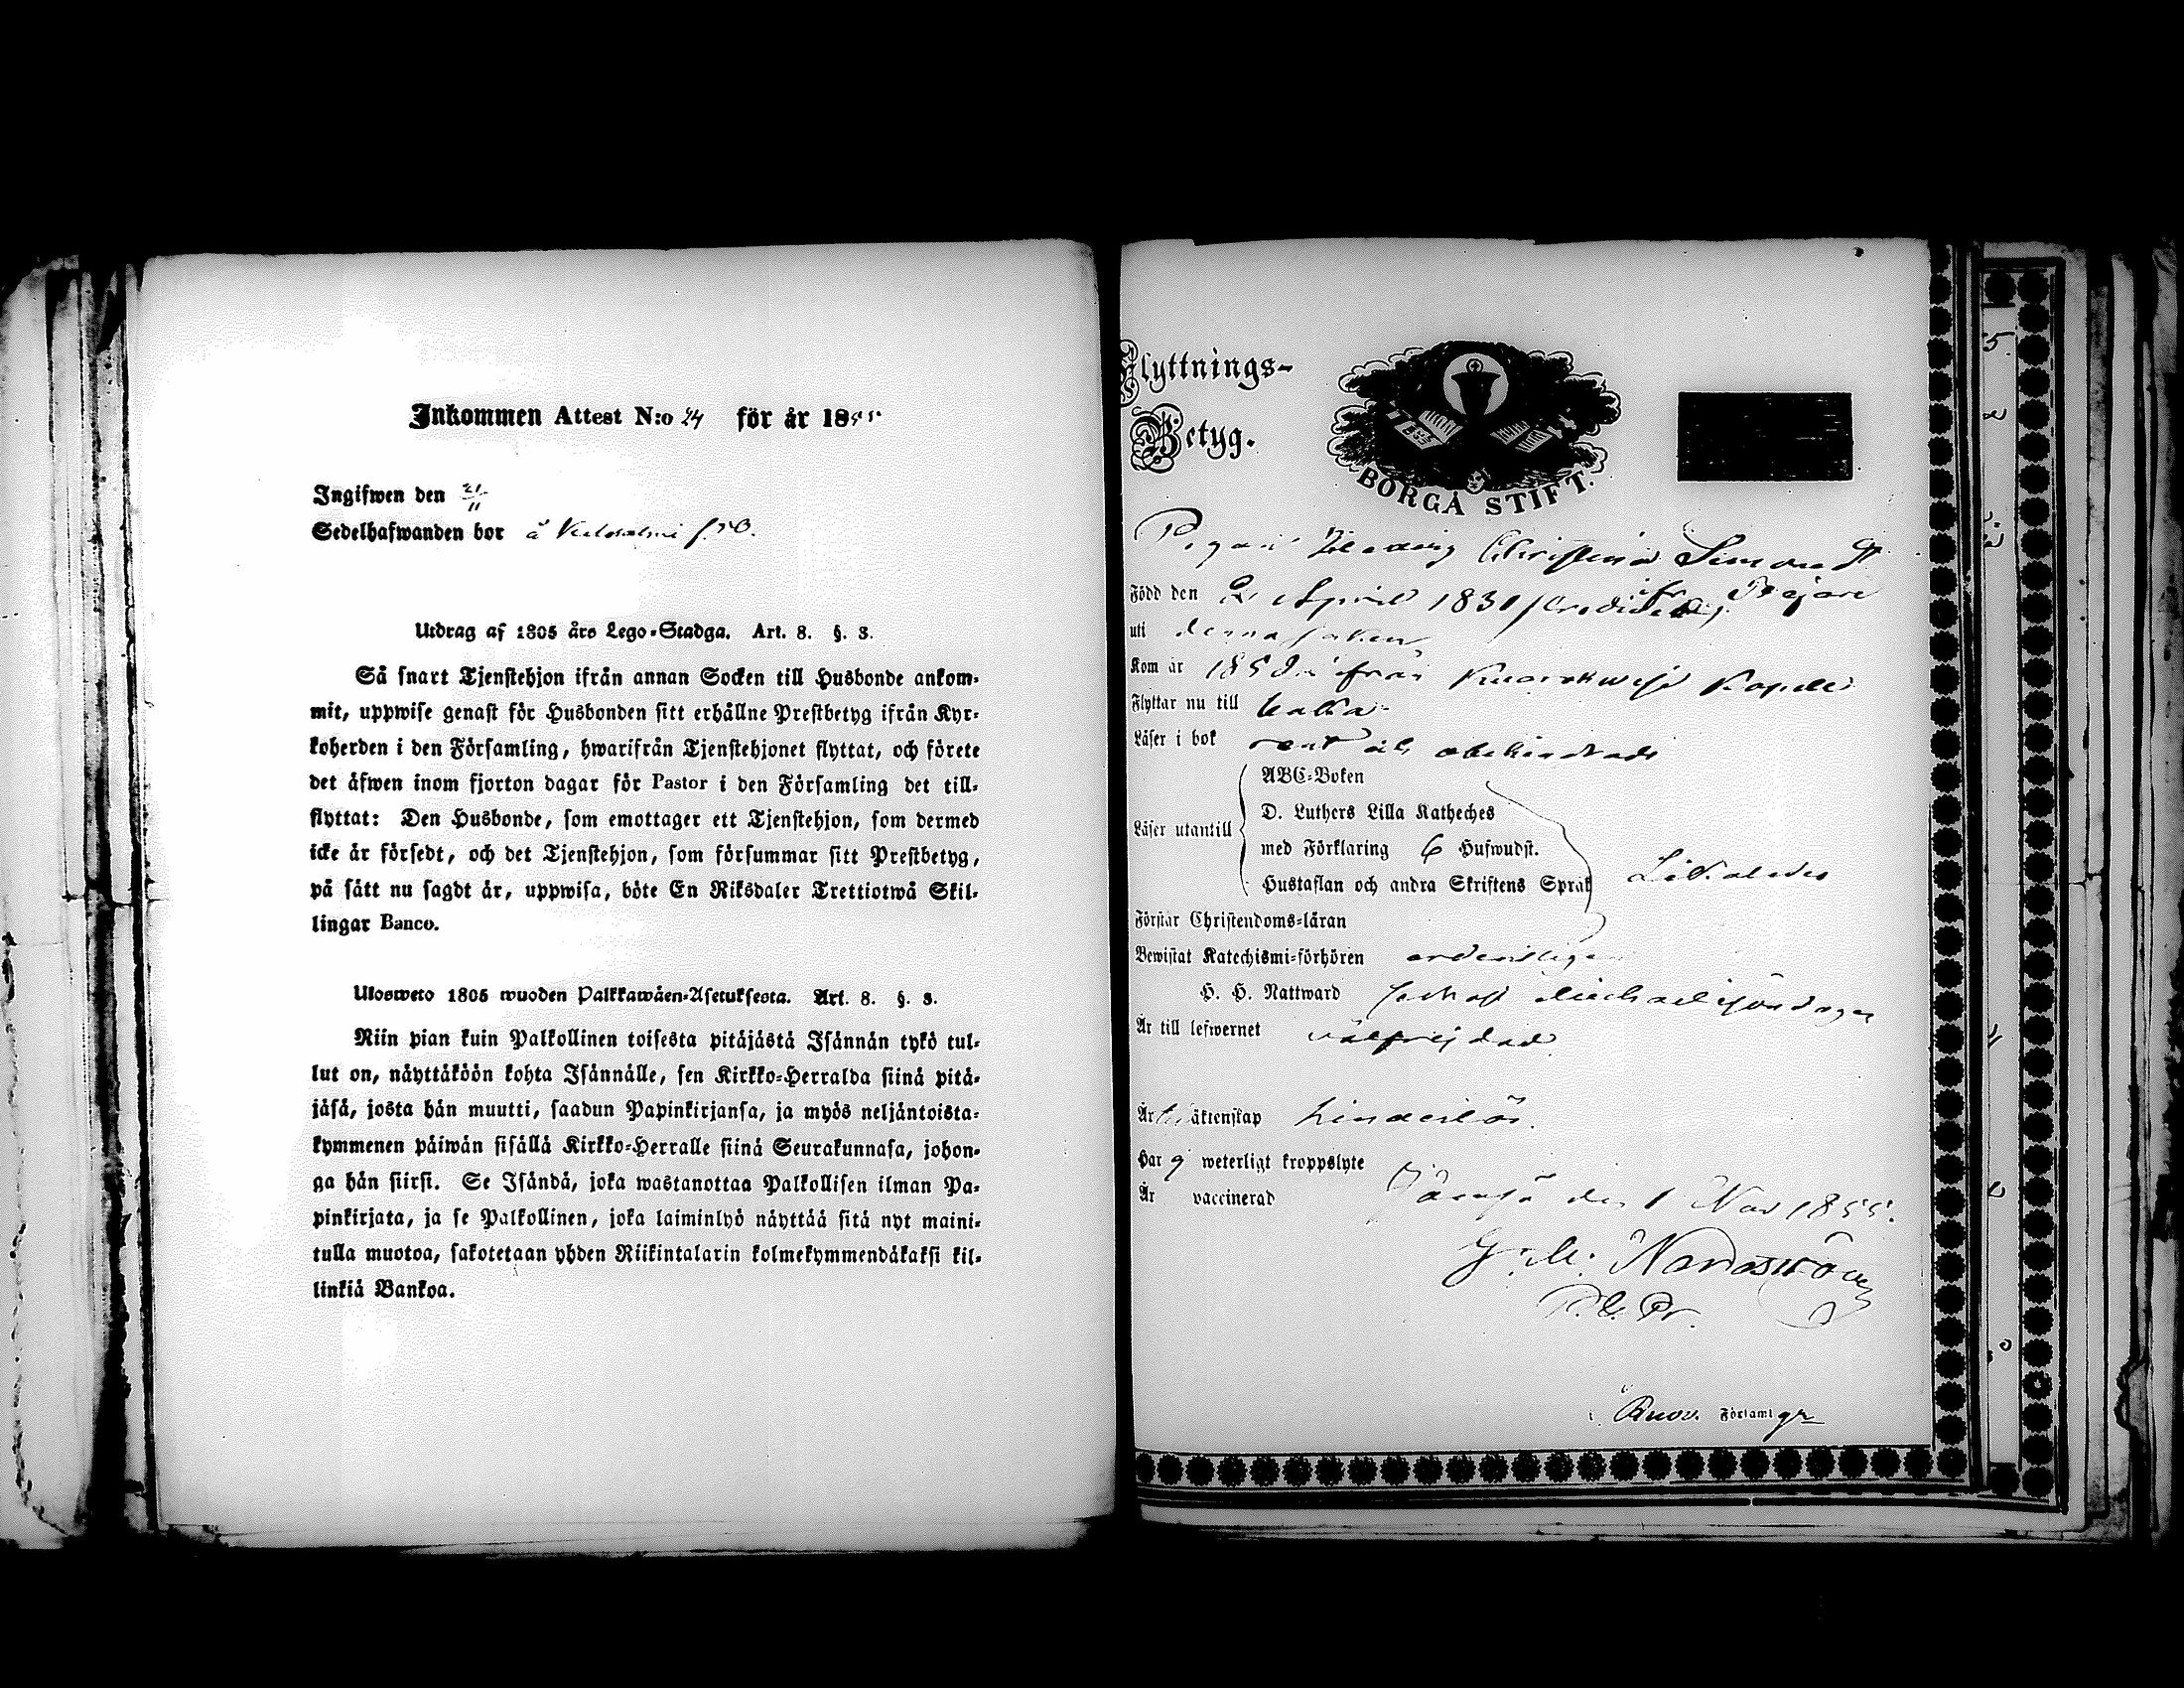 Inkommen Attest N:o 24 för år 1855
Ingifwen den 21/11
Sedelhafwanden bor å
Utdrag af 1805 års Lego-Stadga. Art. 8. §. 3.
Så snart Tjenstehjon ifrån annan Socken till Husbonde ankom-
mit, uppwise genast för Husbonden sitt erhållne Prestbetyg ifrån Kyr-
koherden i den Församling, hwarifrån Tjenstehjonet flyttat, och förete
det äfwen inom fjorton dagar för Pastor i den Församling det till-
flyttat: Den Husbonde, som emottager ett Tjenstehjon, som dermed
icke är försedt, och det Tjenstehjon, som försummar sitt Prestbetyg,
på sätt nu sagdt är, uppwisa, böte En Riksdaler Trettiotwå Skil-
lingar Banco.
Ulosweto 1805 wuoden Palkkawäen-Asetuksesta. Art. 8. §. 3.
Niin pian kuin Palkollinen toisesta pitäjästä Isännän tykö tul-
lut on, näyttäköön kohta Isännälle, sen Kirkko-Herralda siinä pitä-
jäsä, josta hän muutti, saadun Papinkirjansa, ja myös neljäntoista-
kymmenen päiwän sisällä Kirkko-Herralle siinä Seurakunnasa, johon-
ga hän siirsi. Se Isändä, joka wastanottaa Palkollisen ilman Pa-
pinkirjata, ja se Palkollinen, joka laiminlyö näyttää sitä nyt maini-
tulla muotoa, sakotetaan yhden Riikintalarin kolmekymmendäkaksi kil-
linkiä Bankoa.
Flyttnings-
Betyg.
BORGÅ STIFT.
Pigan Hedvig Christina Simonsdr
Född den 2 April 1831
uti denna socken
Kom år 185 från Kuorewesi Kapell
Flyttar nu till
Läser i bok rent
Läser utantill
ABC-Boken
D. Luthers Lilla Katheches
med Förklaring 6 Hufwudst.
Hustaflan och andra Skriftens Språk
Likaledes
Förstår Christendoms-läran
Bewistat Katechismi-förhören ordentligen
H. H. Nattward
Är till lefwernet välfrejdad
Är till äktenskap hinderlös.
Har ej weterligt kroppslyte
Är vaccinerad
Jämsä den 1 Nov 1855.
Nordström
Ruov. Församlgn